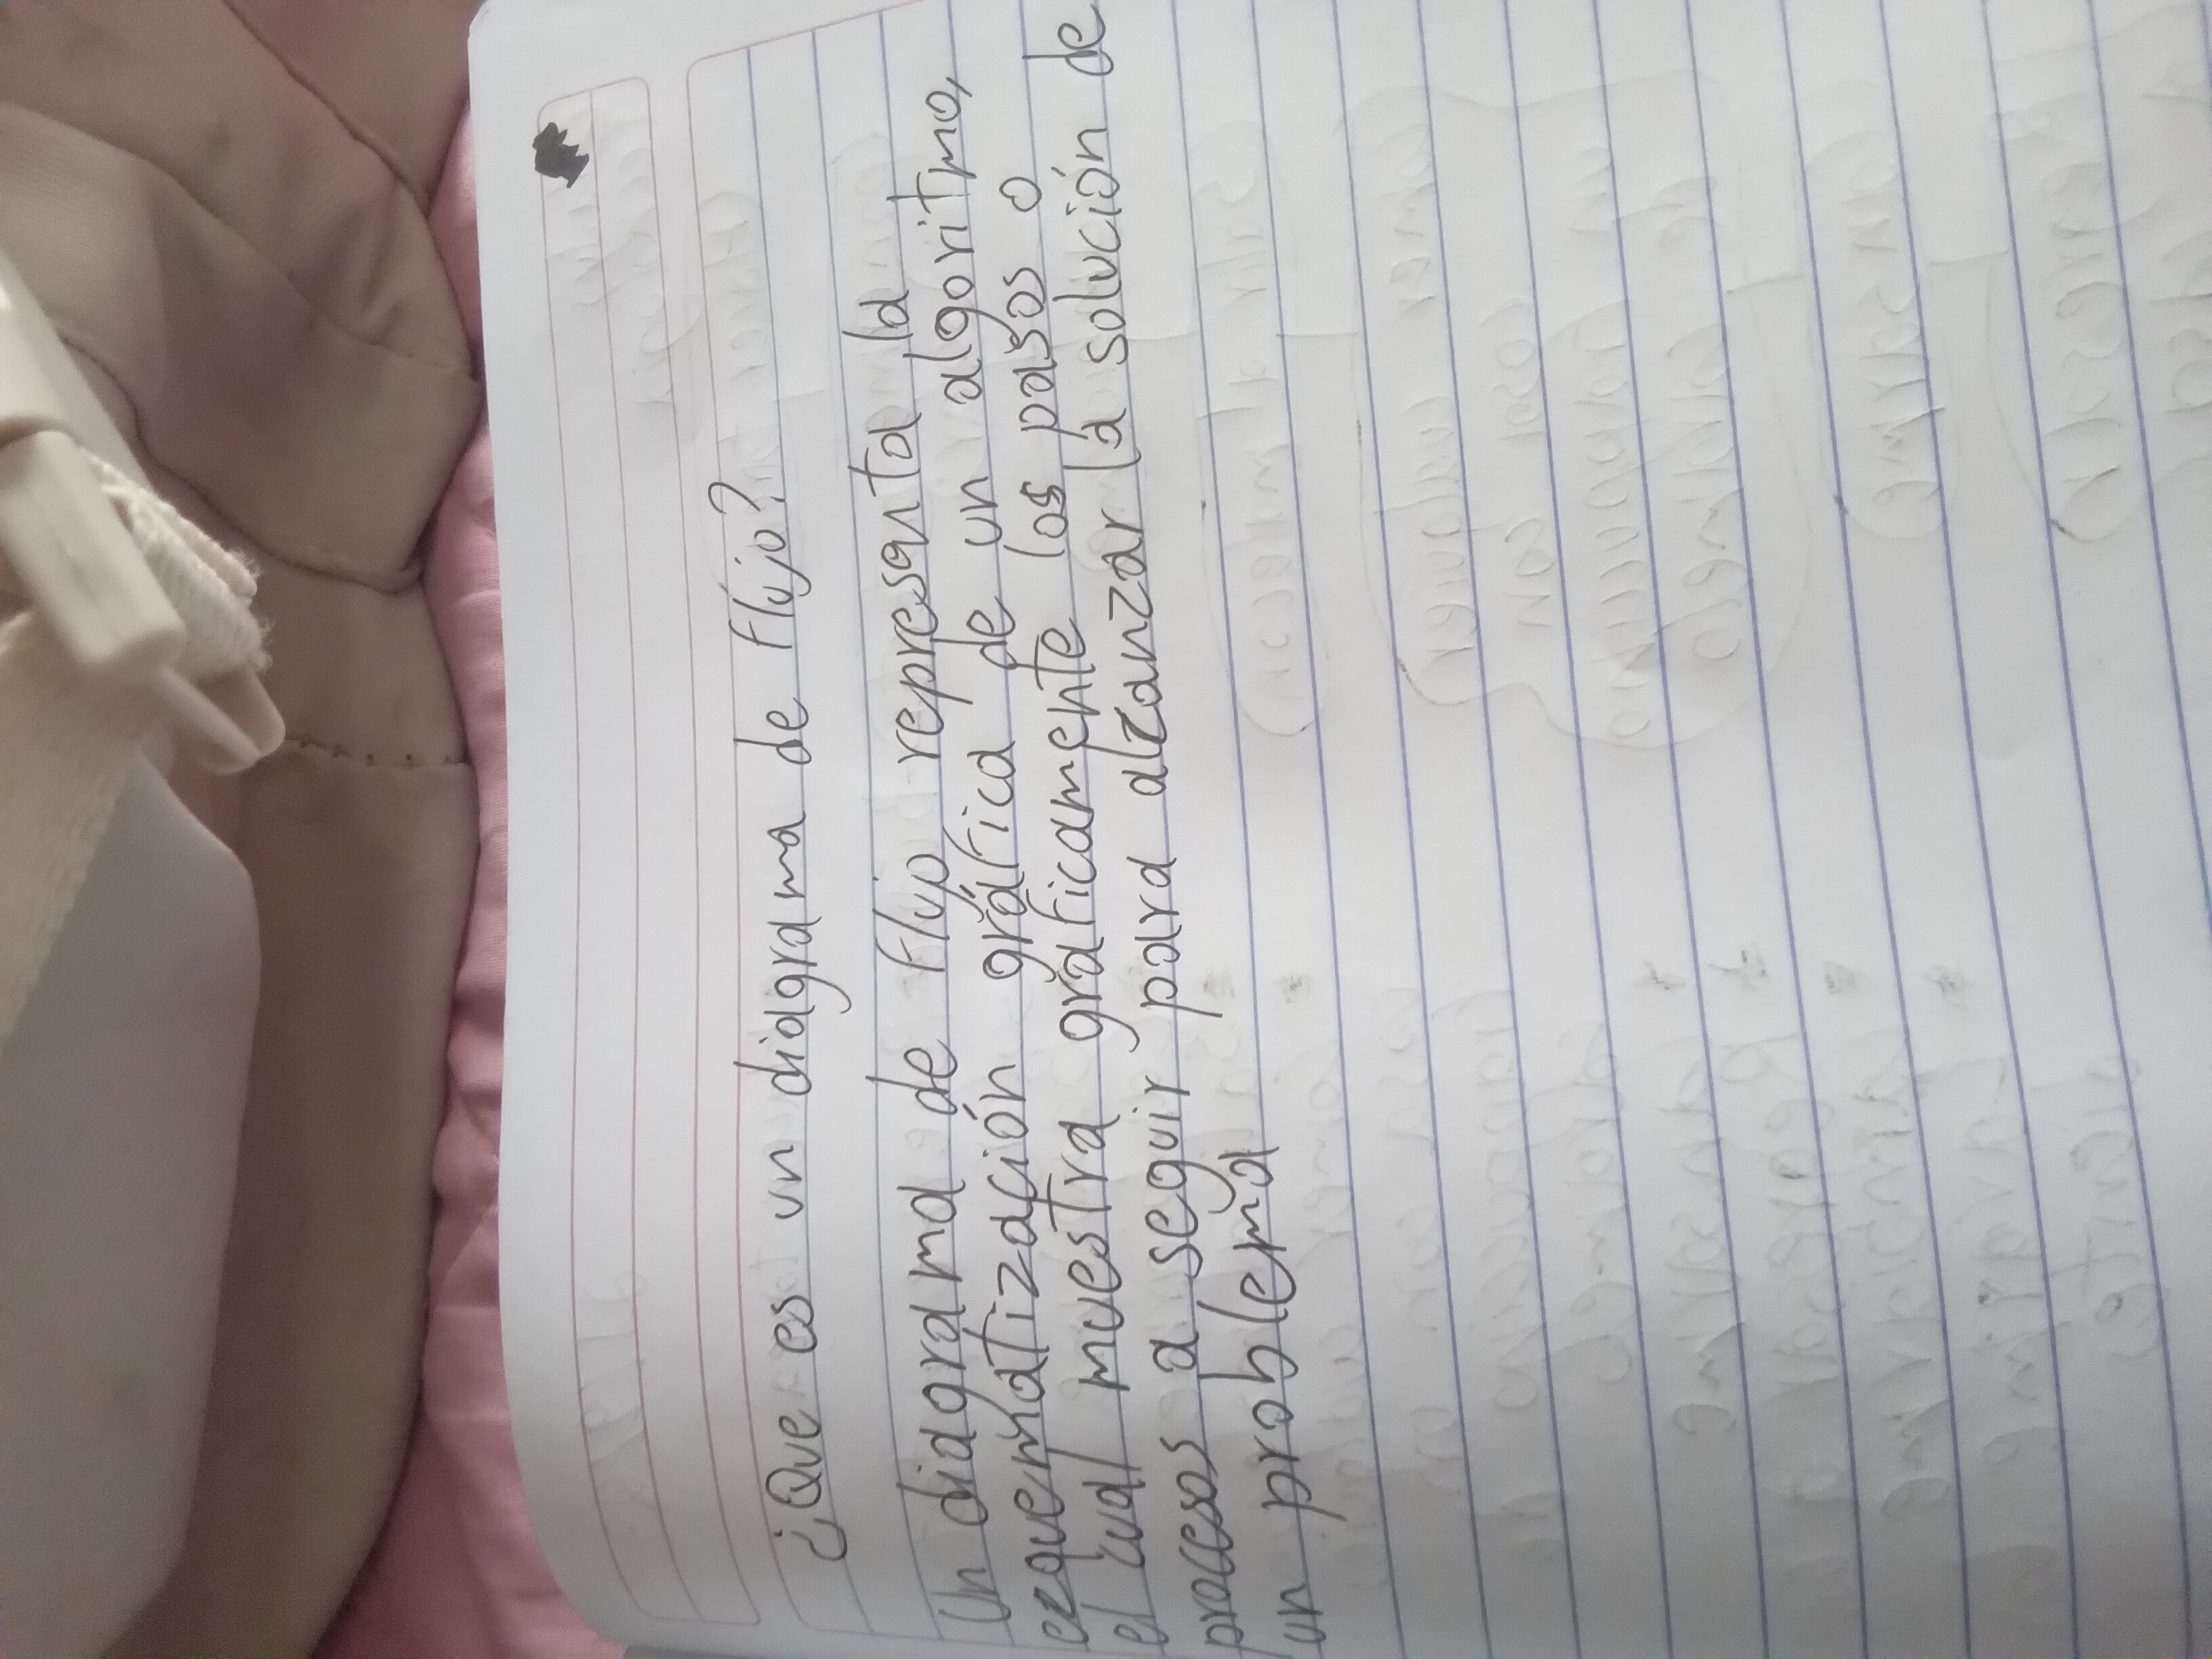 ¿Que es un diagrama de flujo?
Un diagrama de flujo representa la
ezquematización gráfica de un algoritmo,
el cual muestra gráficamente los pasos o
procesos a seguir para alzanzar la solución de
un problema